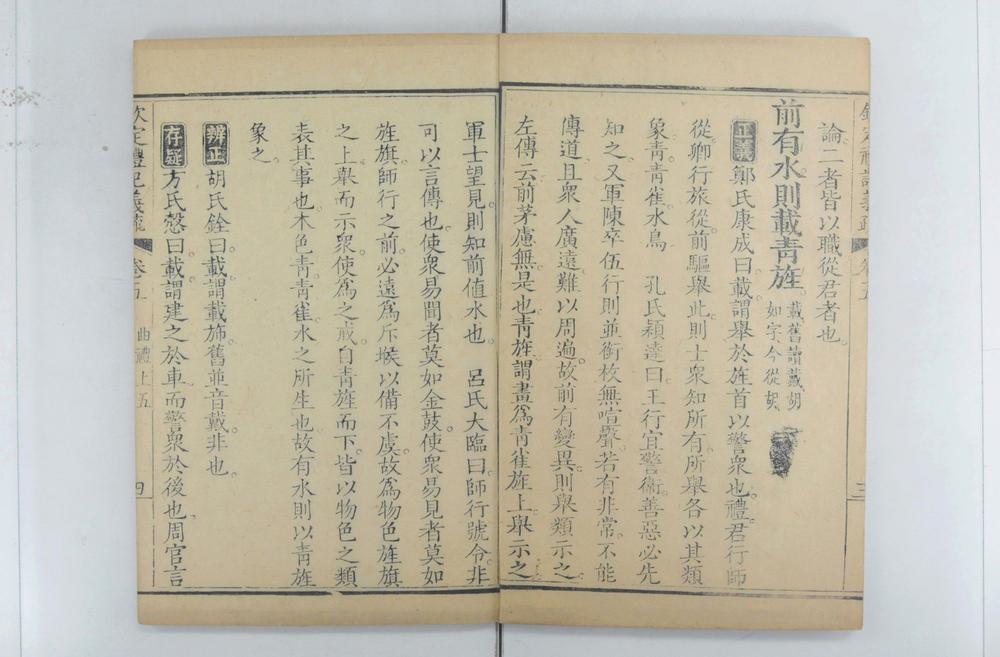 論二者皆以職從君者也
前有水則載青旌 載舊讀戴胡
如字今從胡
正義 鄭氏康成曰載謂舉於旌首以警衆也禮君行師
從卿行旅從前驅舉此則士衆知所有所舉各以其類
象青青雀水鳥 孔氏穎達曰王行宜警衞善惡必先
知之又軍陳卒伍行則並銜枚無喧聲若有非常不能
傳道且衆人廣遠難以周遍故前有變異則舉類示之
左傳云前茅慮無是也青旌謂畫爲青雀旌上舉示之
軍士望見則知前值水也 呂氏大臨曰師行號令非
可以言傳也使衆易聞者莫如金鼓使衆易見者莫如
旌旗師行之前必遠爲斥堠以備不虞故爲物色旌旗
之上舉而示衆使爲之戒自青旌而下皆以物色之類
表其事也木色青青雀水之所生也故有水則以青旌
象之
辨正 胡氏銓曰載謂載斾舊並音戴非也
存疑 方氏慤曰載謂建之於車而警衆於後也周官言
欽定禮記義疏 卷五 曲禮上五 四